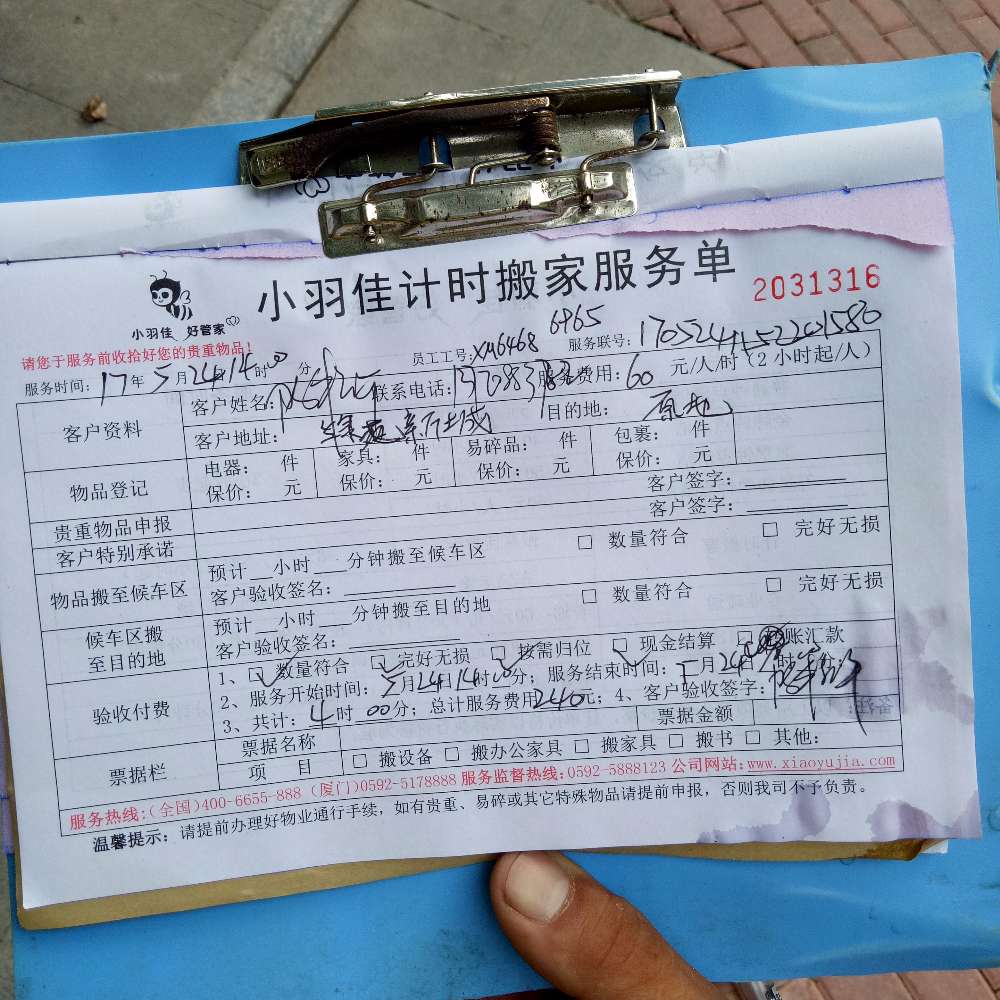 小羽佳计时搬家服务单
2031316
小羽佳 好管家
请您于服务前收拾好您的贵重物品!
员工工号: XM6468 6965 服务联号: 1705244152201580
服务时间: 17年5月24日14时00分
客户资料 客户姓名: 联系电话: 服务费用: 60 元/人/时(2小时起/人)
客户地址: 目的地:
物品登记 电器: 件 家具: 件 易碎品: 件 包裹: 件
保价: 元 保价: 元 保价: 元 保价: 元
贵重物品申报 客户签字:
客户特别承诺 客户签字:
物品搬至候车区 预计 小时 分钟搬至候车区 □ 数量符合 □ 完好无损
客户验收签名:
候车区搬至目的地 预计 小时 分钟搬至目的地 □ 数量符合 □ 完好无损
客户验收签名:
验收付费 1、☑数量符合 ☑完好无损 ☑按需归位 ☑现金结算 □ 账汇款
2、服务开始时间: 5月24日14时00分; 服务结束时间: 月24日 时 分;
3、共计: 4时00分; 总计服务费用240元; 4、客户验收签字:
票据栏 票据名称 票据金额
项 目 □ 搬设备 □ 搬办公家具 □ 搬家具 □ 搬书 □ 其他:
服务热线:(全国)400-6655-888 (厦门)0592-5178888 服务监督热线:0592-5888123 公司网站:www.xiaoyujia.com
温馨提示: 请提前办理好物业通行手续,如有贵重、易碎或其它特殊物品请提前申报,否则我司不予负责。